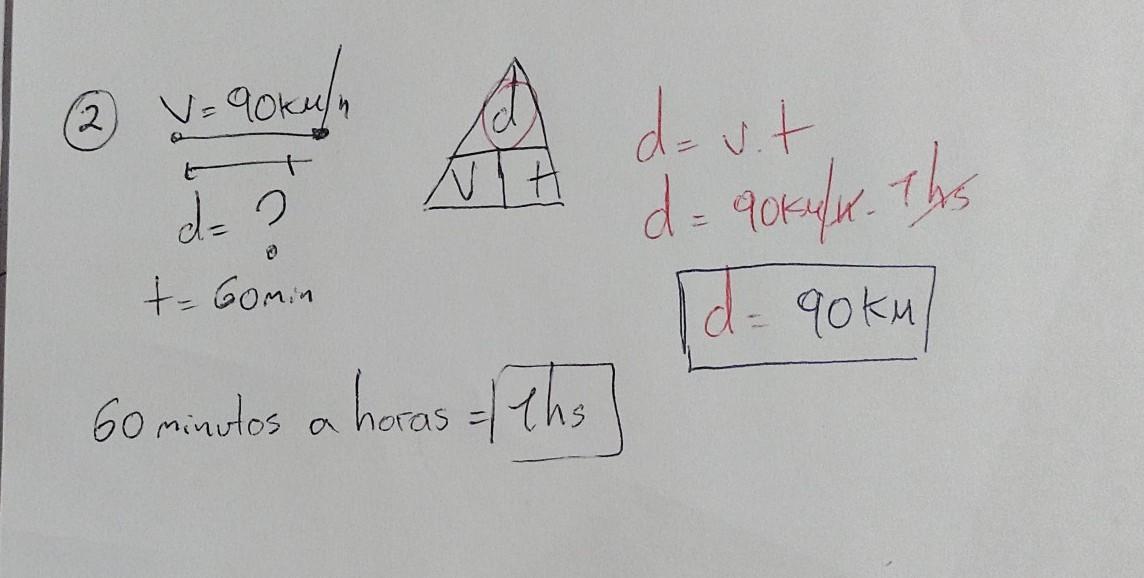 2
V=90KM/h
d=?
t=60min
d
V t
d=v.t
d=90KM/h.1hs
d=90KM
60minutos a horas=1hs